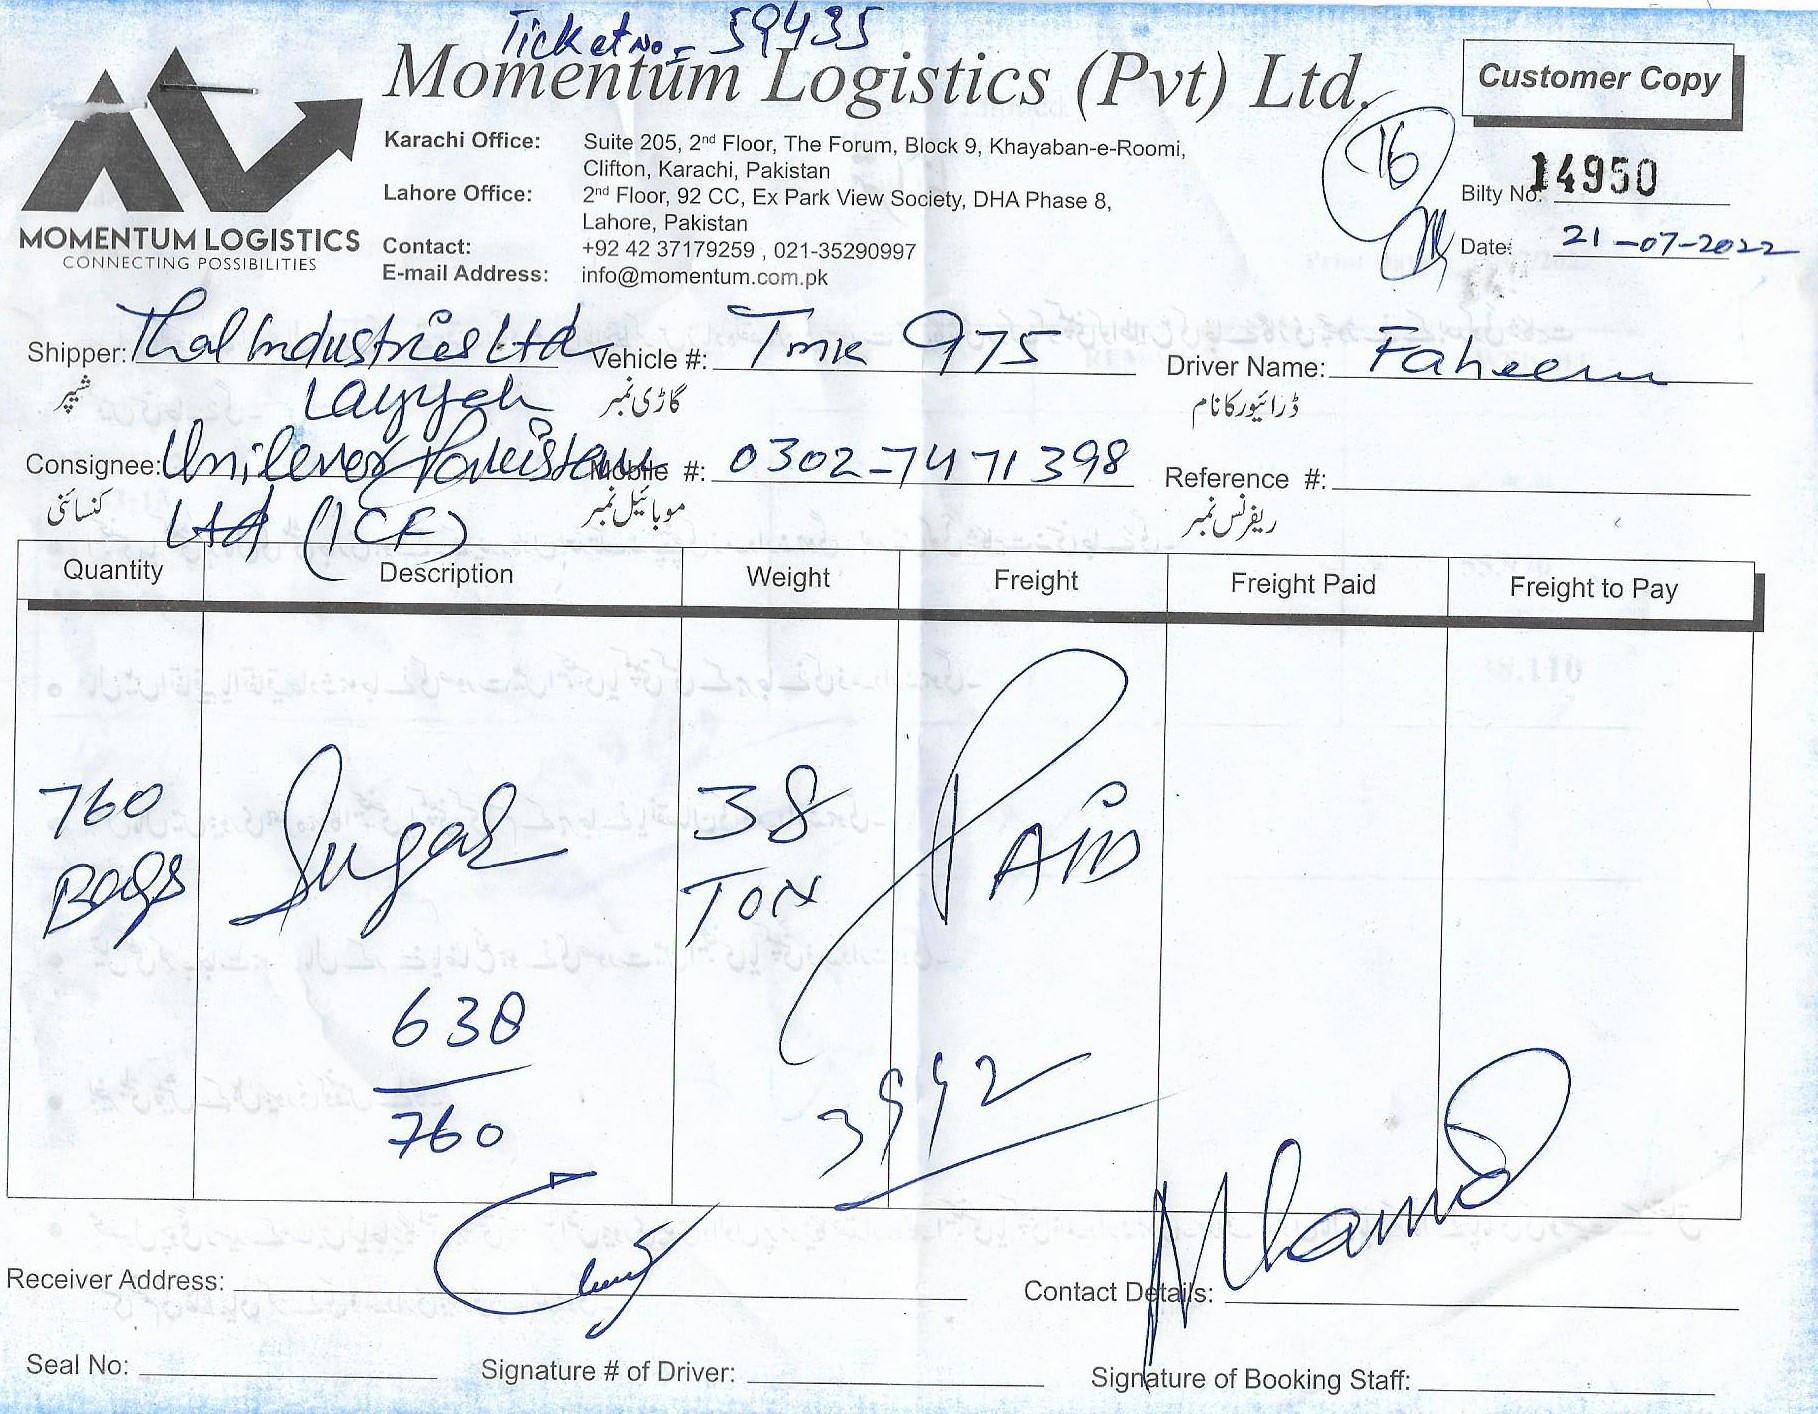 Ticket No - 59435
Momentum Logistics (Pvt) Ltd.
Customer Copy
MOMENTUM LOGISTICS
CONNECTING POSSIBILITIES
Karachi Office: Suite 205, 2nd Floor, The Forum, Block 9, Khayaban-e-Roomi,
Clifton, Karachi, Pakistan
Lahore Office: 2nd Floor, 92 CC, Ex Park View Society, DHA Phase 8,
Lahore, Pakistan
Contact: +92 42 37179259 , 021-35290997
E-mail Address: info@momentum.com.pk
16
Bilty No. 14950
Date: 21-07-2022
Shipper: Thal Industries Ltd Vehicle #: TMK 975 Driver Name: Faheem
شیپر Layyah گاڑی نمبر ڈرائیور کا نام
Consignee: Unilever Pakistan Mobile #: 0302-7471398 Reference #:
کنسائنی Ltd (ICF) موبائیل نمبر ریفرنس نمبر
Quantity Description Weight Freight Freight Paid Freight to Pay
760 Sugar 38 PAID
Bags TON
630
760
3992
Receiver Address: Contact Details:
Seal No: Signature # of Driver: Signature of Booking Staff: